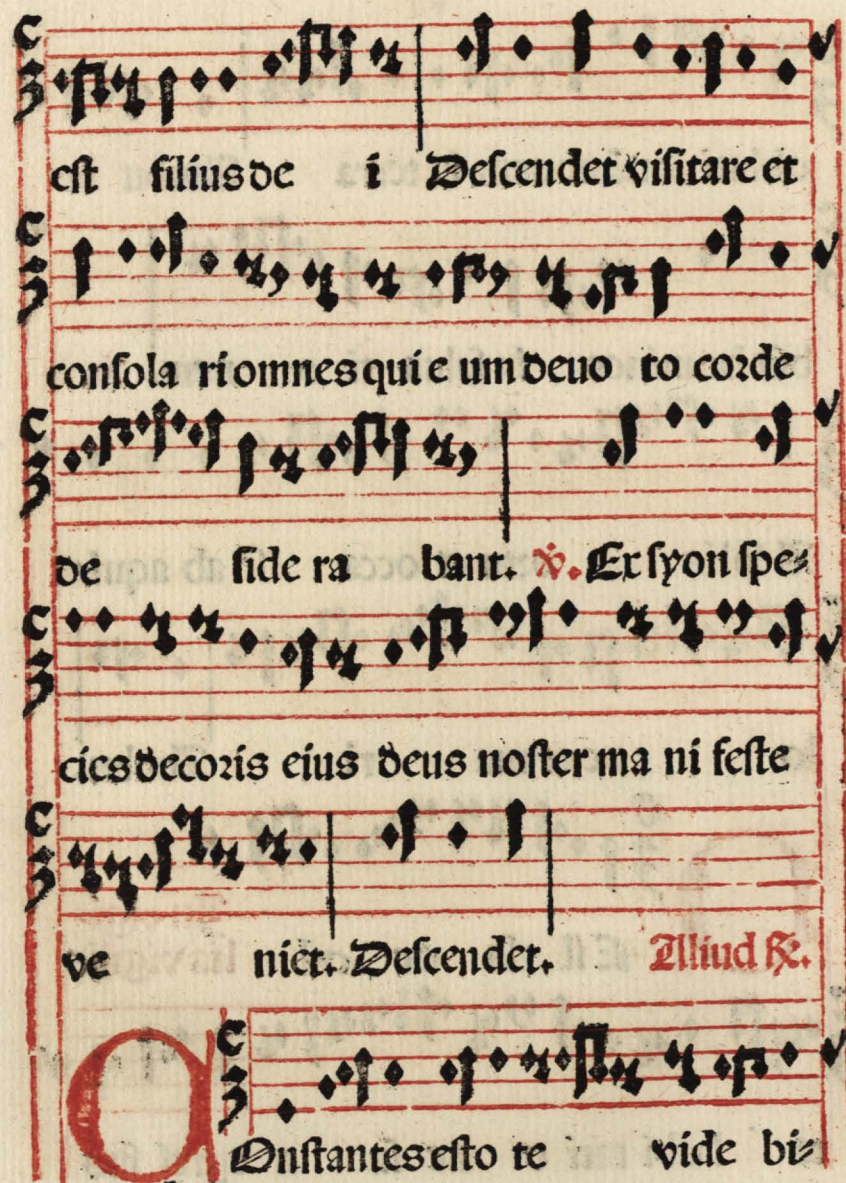 est filius de i Descendet visitare et
consola ri omnes qui e um deuo to corde
de side ra bant. ℣. Ex syon spe⸗
cies decoris eius deus noster ma ni feste
ve niet. Descendet. Aliud ℟.
COnstantes esto te vide bi⸗